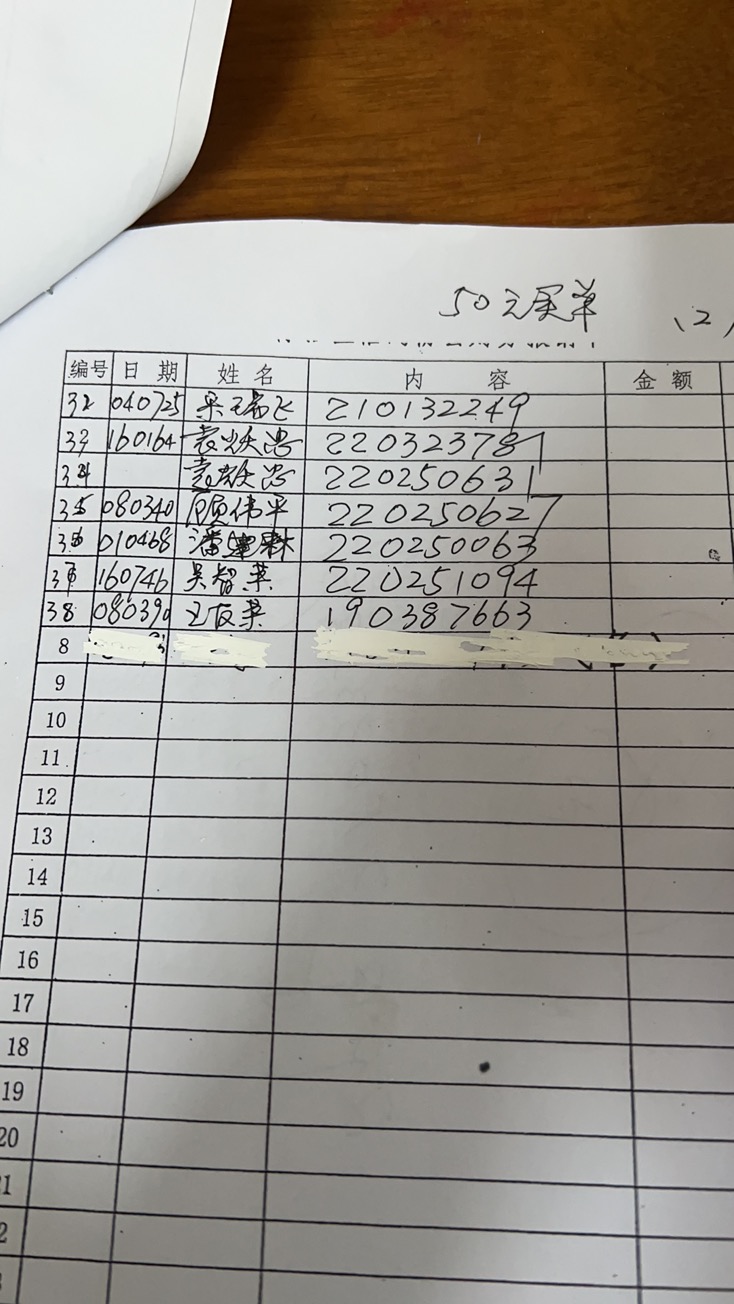 50元买单 (2)
编号 日期 姓名 内容 金额
32 040725 飞 210132249
33 160164 袁焕忠 220323787
34 袁焕忠 220250631
35 080340 顾伟平 220250627
36 010468 潘建林 220250063
37 160746 吴智英 220251094
38 080390 王友英 190387663
8
9
10
11
12
13
14
15
16
17
18
19
20